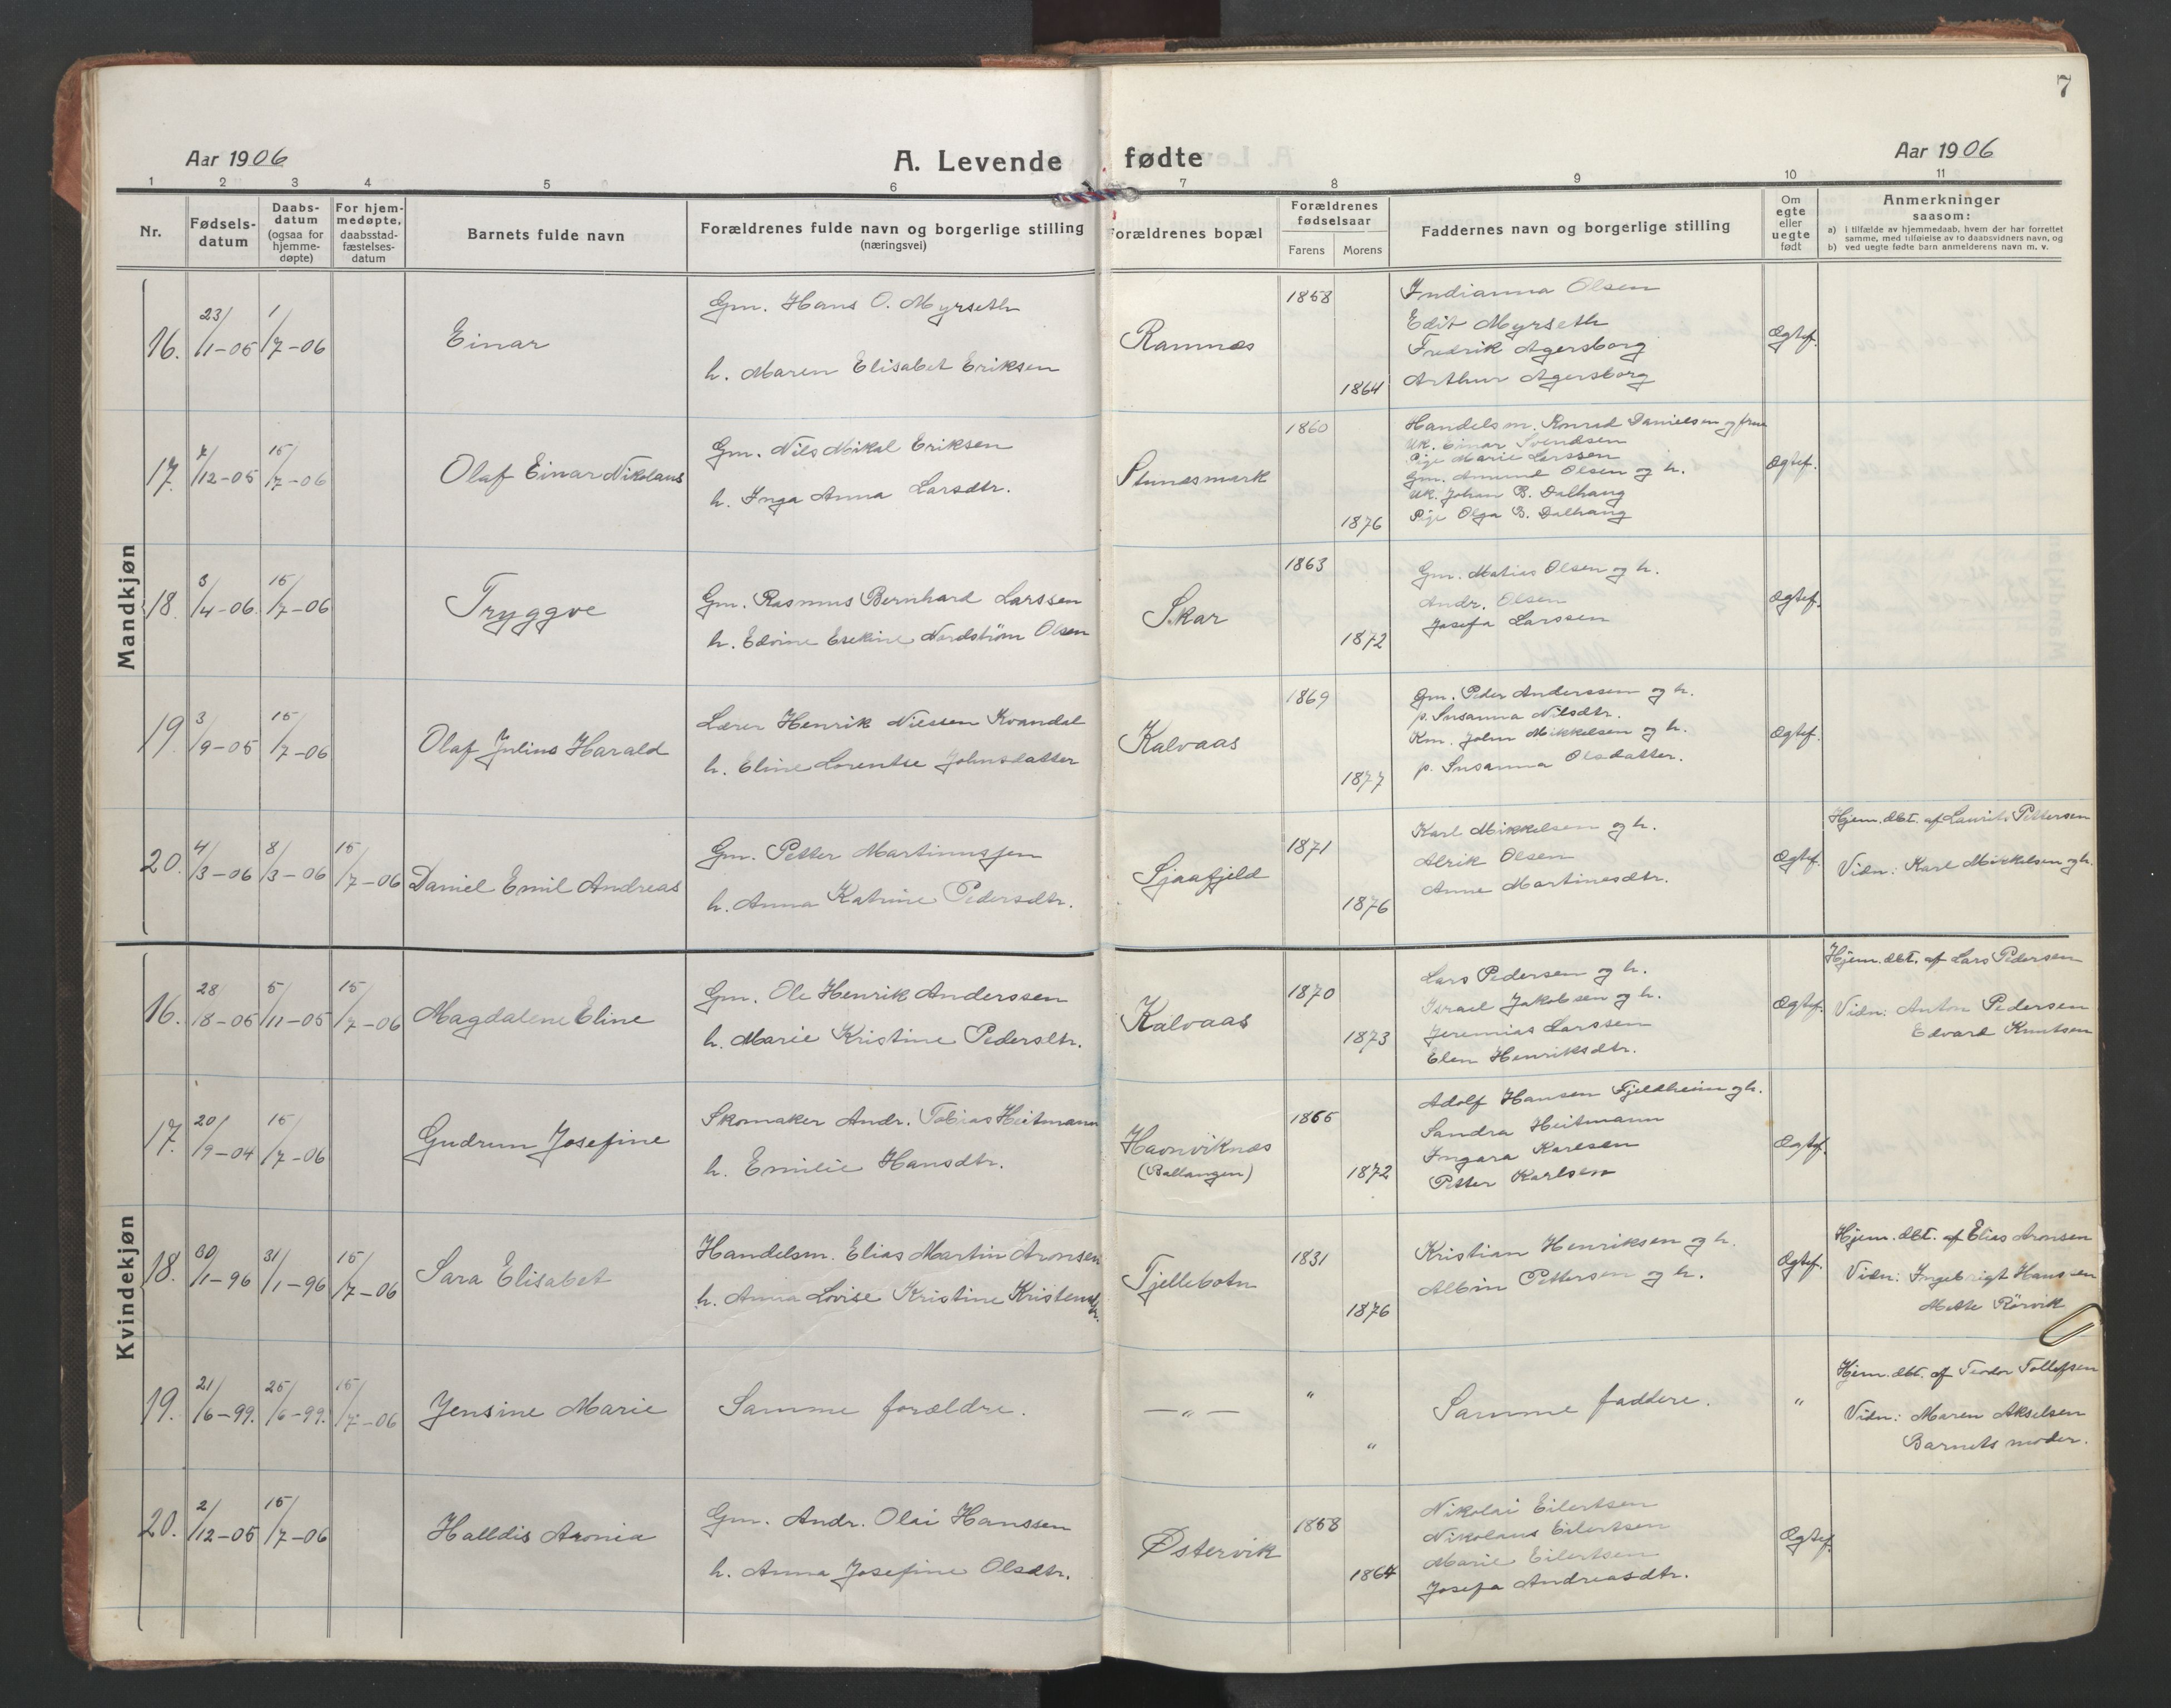 7
Aar 1906
A. Levende fødte
Aar 1906
1 2 3 4 5 6 7 8 9 10 11
Nr.
Fødsels-
datum
Daabs-
datum
(ogsaa for
hjemme-
døpte)
For hjem-
medøpte,
daabsstad-
fæstelses-
datum
Barnets fulde navn
Forældrenes fulde navn og borgerlige stilling
(næringsvei)
Forældrenes bopæl
Forældrenes
fødselsaar
Farens Morens
Faddernes navn og borgerlige stilling
Om
egte
eller
uegte
født
Anmerkninger
saasom:
a) i tilfælde av hjemmedaab, hvem der har forrettet
samme, med tilføielse av to daabsvidners navn, og
b) ved uegte fødte barn anmelderens navn m. v.
Mandkjøn
16. 23/1-05 1/7-06
Einar
Gm. Hans O. Myrseth
h. Maren Elisabet Eriksen
Ramnæs
1858
1864
Indianna Olsen
Edit Myrseth
Fredrik Agersborg
Arthur Agersborg
Ægtef.
17. 7/12-05 15/7-06
Olaf Einar Nikolaus
Gm. Nils Mikal Eriksen
h. Inga Anna Larsdtr.
Stunæsmark
1860
1876
Handelsm. Konrad Danielsen og frue
Uk. Einar Svendsen
Pige Marie Larssen
Gm. Amund Olsen og h.
Uk. Johan B. Dalhaug
Pige Olga B. Dalhaug
Ægtef.
18. 3/4-06. 15/7-06
Tryggve
Gm. Rasmus Bernhard Larssen
h. Edvine Esekine Nordstrøm Olsen
Skar
1863
1872
Gm. Matias Olsen og h.
Andr. Olsen
Josefa Larssen
Ægtef.
19. 3/9-05 15/7-06
Olaf Julius Harald
Lærer Henrik Nilssen Kvandal
h. Eline Lorentse Johnsdatter
Kalvaas
1869
1877
Gm. Peder Anderssen og h.
p. Susanna Nilsdtr.
Km. John Mikkelsen og h.
p. Susanna Olsdatter.
Ægtef.
20. 4/3-06 8/3-06 15/7-06
Daniel Emil Andreas
Gm. Petter Martinussen
h. Anna Katrine Pedersdtr.
Sjaafjeld
1871
1876
Karl Mikkelsen og h.
Alrik Olsen
Anne Martinesdtr.
Ægtef.
Hjem.dbt. af Laurits Pettersen
Vidn: Karl Mikkelsen og h.
Kvindekjøn
16. 28/18-05 5/11-05 15/7-06
Magdalene Eline
Gm. Ole Henrik Anderssen
h. Marie Kristine Pedersdtr.
Kalvaas
1870
1873
Lars Pedersen og h.
Israel Jakobsen og h.
Jeremias Larssen
Elen Henriksdtr.
Ægtef.
Hjem.dbt. af Lars Pedersen
Vidn: Anton Pedersen
Edvard Knutsen
17. 20/9-04 15/7-06
Gudrun Josefine
Skomaker Andr. Tobias Heitmann
h. Emilie Hansdtr.
Havnviknæs
(Ballangen)
1865
1872
Adolf Hansen Fjeldheim og h.
Sandra Heitmann
Ingara Karlsen
Petter Karlsen
Ægtef.
18. 30/1-96 31/1-96 15/7-06
Sara Elisabet
Handelsm. Elias Martin Aronsen
h. Anna Lovise Kristine Kristensdtr.
Tjellebotn
1831
1876
Kristian Henriksen og h.
Albin Pettersen og h.
Ægtef.
Hjem.dbt. af Elias Aronsen
Vidn: Ingebrigt Hansen
Mette Rörvik
19. 21/6-99. 25/6-99. 15/7-06
Jensine Marie
Samme forældre.
— " —
"
"
Samme faddere.
"
Hjem.dbt. af Teodor Tollefsen
Vidn: Maren Akselsen
Barnets moder.
20. 2/12-05 15/7-06
Halldis Aronia
Gm. Andr. Olai Hanssen
h. Anna Josefine Olsdtr.
Østervik
1858
1864
Nikolai Eilertsen
Nikolaus Eilertsen
Marie Eilertsen
Josefa Andreasdtr.
Ægtef.